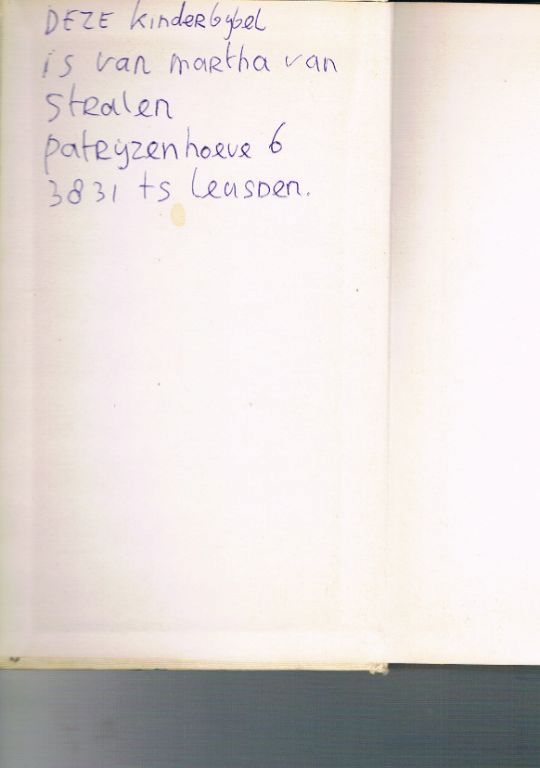 DEZE kinderbijbel
is van martha van
stralen
patrijzenhoeve 6
3831 ts leusden.